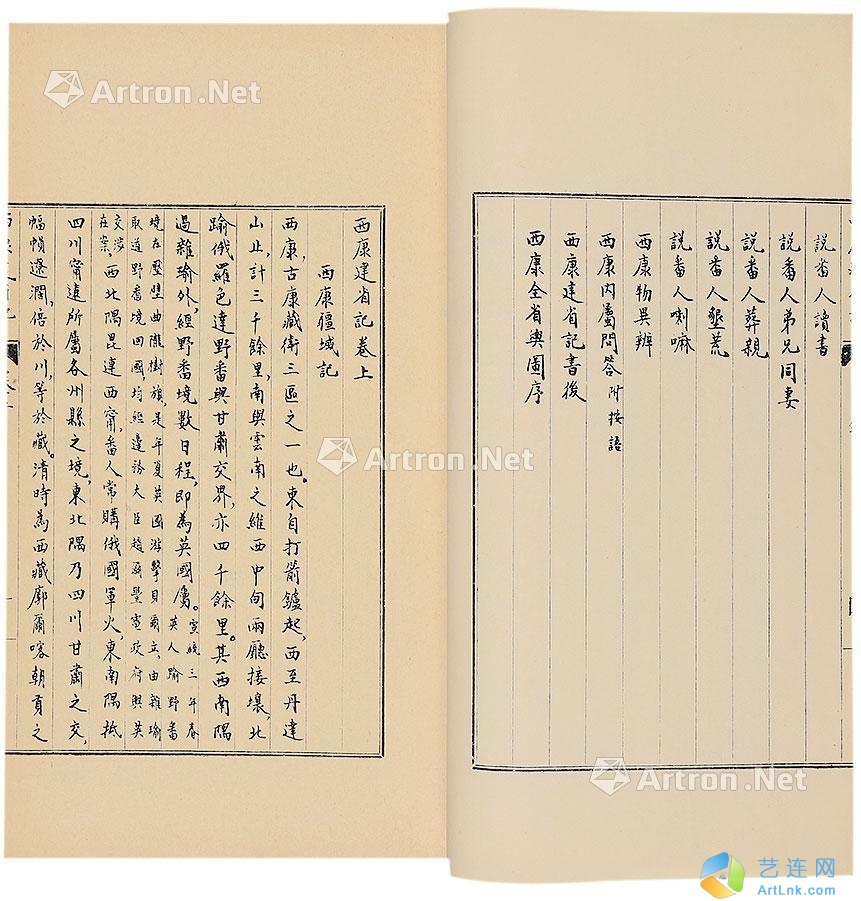 說畨人讀書
說畨人弟兄同妻
說畨人葬親
說畨人墾荒
說畨人喇嘛
西康物異辨
西康內屬問答 附按語
西康建省記書後
西康全省輿圖序
西康建省記卷上
西康疆域記
西康，古康藏衛三區之一也。東自打箭鑪起，西至丹達
山止，計三千餘里，南與雲南之維西中甸兩廳接壤，北
踰俄羅邑達野番與甘肅交界，亦四千餘里。其西南隅
過雜瑜外，經野番境數日程，即為英國屬。宣統三年春英人踰野番
境在壓壁曲隴樹旗，是年夏英國游擊貝爾立，由雜瑜
取道野番境回國，均經邊務大臣趙爾豐電政府與英
交涉在案。西北隅毘連西甯，番人常購俄國軍火，東南隅抵
四川甯遠所屬各州縣之境，東北隅乃四川甘肅之交，
幅幀遼濶，倍於川，等於藏。清時為西藏廓爾喀朝貢之
Artron.Net
Artron.Net
Artron.Net
艺连网
ArtLnk.com